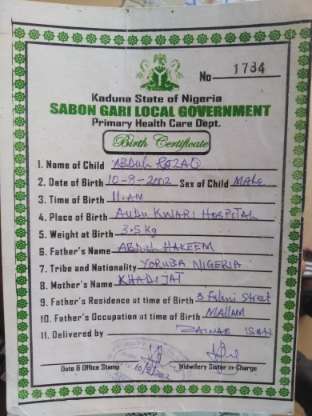 No 1734
Kaduna State of Nigeria
SABON GARI LOCAL GOVERNMENT
Primary Health Care Dept.
Birth Certificate
1. Name of Child Abdul RAZAQ
2. Date of Birth 10-9-2002 Sex of Child Male
3. Time of Birth 11 AM
4. Place of Birth Audu KWARI HOSPITAL
5. Weight at Birth 3.5kg
6. Father's Name Abdul HAKEEM
7. Tribe and Nationality YORUBA NIGERIA
8. Mother's Name KHADIJAT
9. Father's Residence at time of Birth 3 Street
10. Father's Occupation at time of Birth MALLAM
11. Delivered by ZAINAB
Date & Office Stamp Midwifery Sister in-Charge